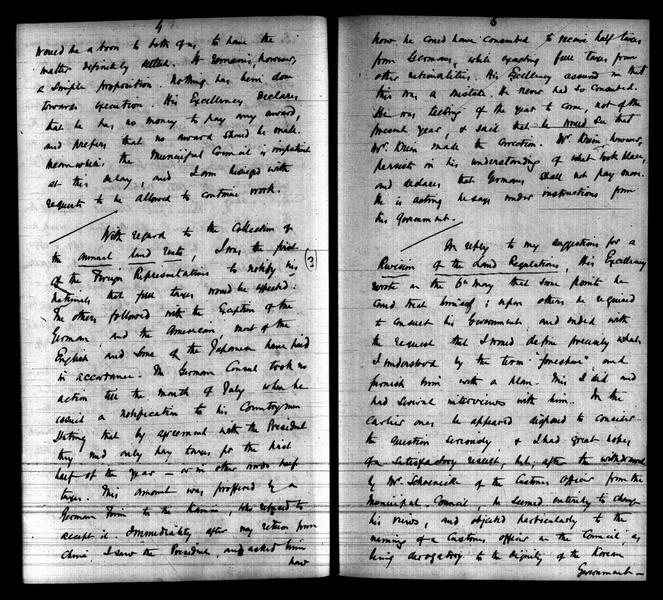 4
would be a boon to both of us to have the
matter definitely settled. It remains, however,
a simple proposition. Nothing has been done
towards execution. His Excellency declares
that he has no money to pay any award,
and prefers that no award should be made.
Meanwhile the Municipal Council is impatient
at this delay, and I am besieged with
requests to be allowed to continue work.
With regard to the Collection of
the annual land rents, I was the first
of the Foreign Representatives to notify his
nationals that full taxes would be expected.
The others followed with the exception of the
German, and the Americans, most of the
English and some of the Japanese have paid
in accordance. The German Consul took no
action till the month of July when he
issued a notification to his Countrymen
stating that by agreement with the President
they need only pay taxes for the first
half of the year — or in other words half
taxes. This amount was proffered by a
German Firm to the Kamni, who refused to
accept it. Immediately after my return from
Chini I saw the President, and asked him
how
(3)
5
how he could have consented to receive half taxes
from Germans, while exacting full taxes from
other nationalities. His Excellency assured me that
this was a mistake. He never had so consented.
He was talking of the year to come, not of the
present year, & said that he would see that
Mr. Krien made the correction. Mr. Krien however,
persists in his understanding of what took place,
and declares that Germans shall not pay more.
He is acting he says under instructions from
his Government.
In reply to my suggestions for a
Revision of the Land Regulations, His Excellency
wrote on the 6th May that some points he
could treat himself; upon others he required
to consult his Government, and ended with
the request that I would define precisely what
I understood by the term "foreshore", and
furnish him with a plan. This I did and
had several interviews with him. In the
earlier ones he appeared disposed to consider
the question seriously & I had great hopes
of a satisfactory result, but, after the withdrawal
by Mr. Schoenicke of the Customs Officer from the
Municipal Council, he seemed entirely to change
his views, and objected particularly to the
naming of a Customs officer on the Council as
being derogatory to the dignity of the Korean
Government —